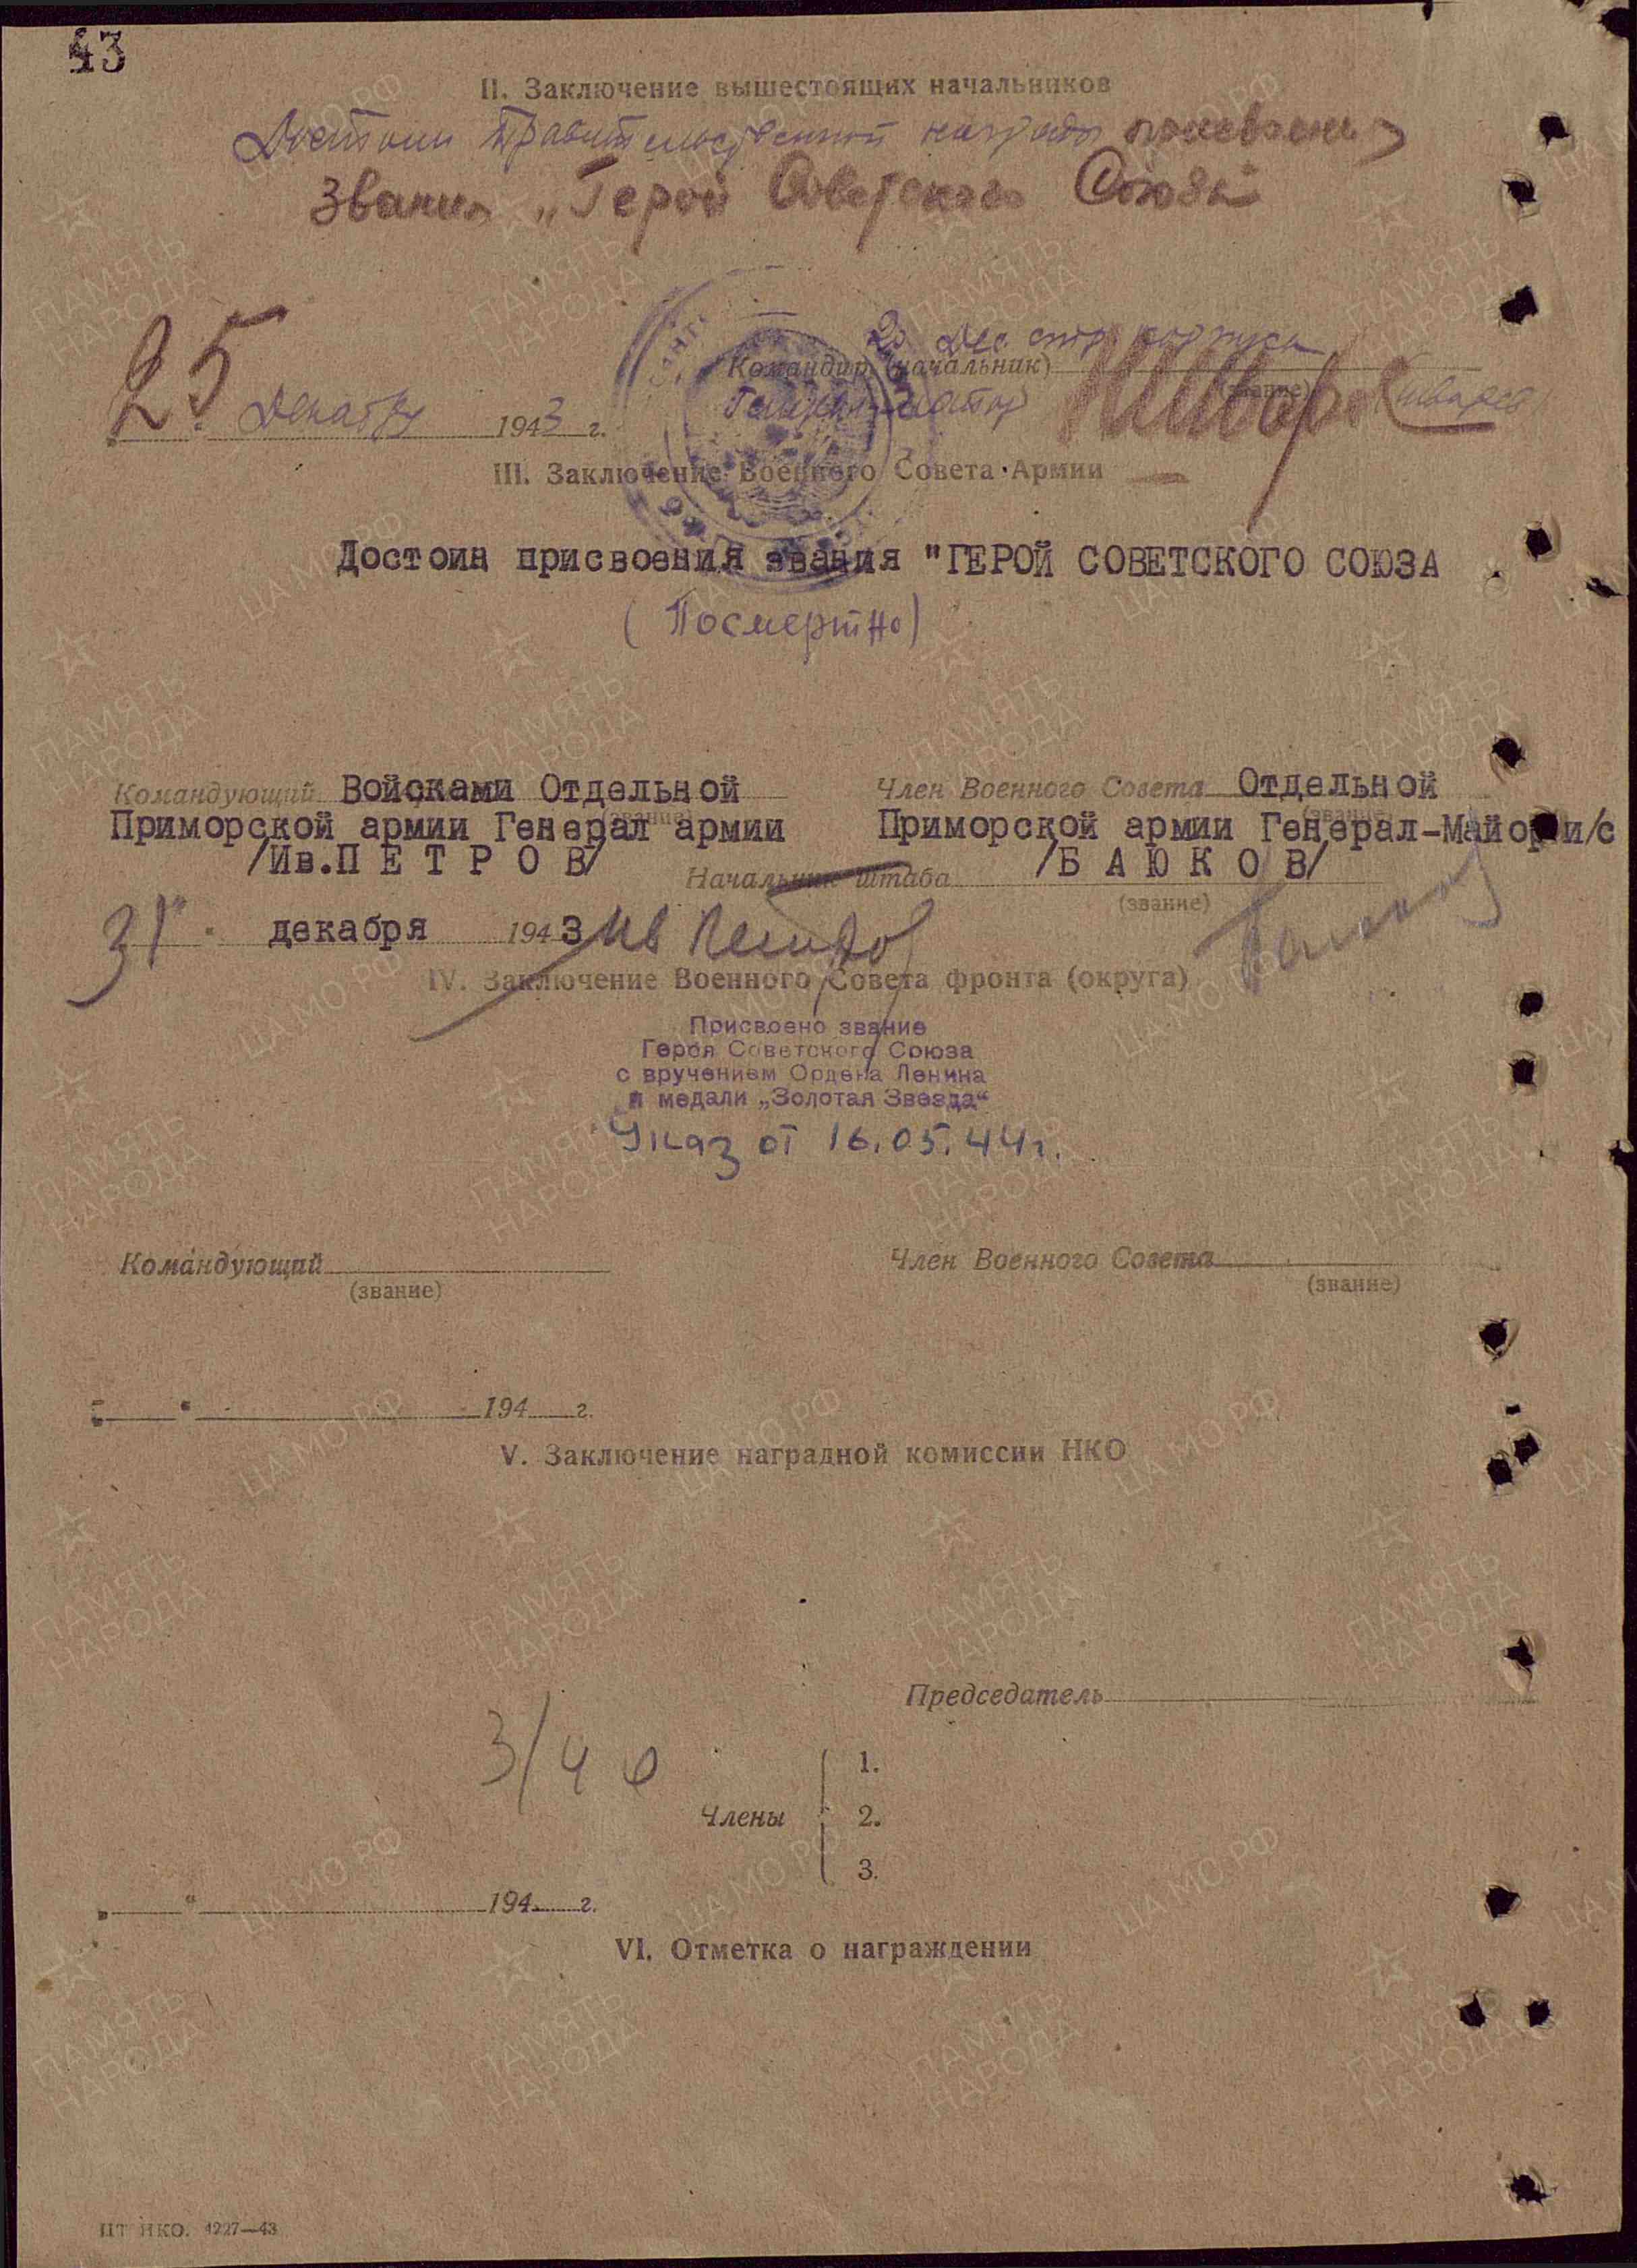 43
II. Заключение вышестоящих начальников
Достоин Правительственной награды присвоения
звания „Герой Советского Союза"
Командир (начальник)
25 декабря 1943 г.
III. Заключение Военного Совета Армии
Достоин присвоения звания "ГЕРОЙ СОВЕТСКОГО СОЮЗА
(Посмертно)
Командующий Войсками Отдельной
Приморской армии Генерал армии
/Ив.ПЕТРОВ/
Член Военного Совета Отдельной
Приморской армии Генерал-Майор и/с
/БАЮКОВ/
Начальник штаба
(звание)
31 декабря 1943 Ив Петров
IV. Заключение Военного Совета фронта (округа)
Присвоено звание
Героя Советского Союза
с вручением Ордена Ленина
и медали „Золотая Звезда“
Указ от 16.05.44г.
Командующий
(звание)
Член Военного Совета
(звание)
„ “ 194 г.
V. Заключение наградной комиссии НКО
Председатель
Члены
1.
2.
3.
„ “ 194 г.
VI. Отметка о награждении
ЦА МО РФ
ПАМЯТЬ
НАРОДА